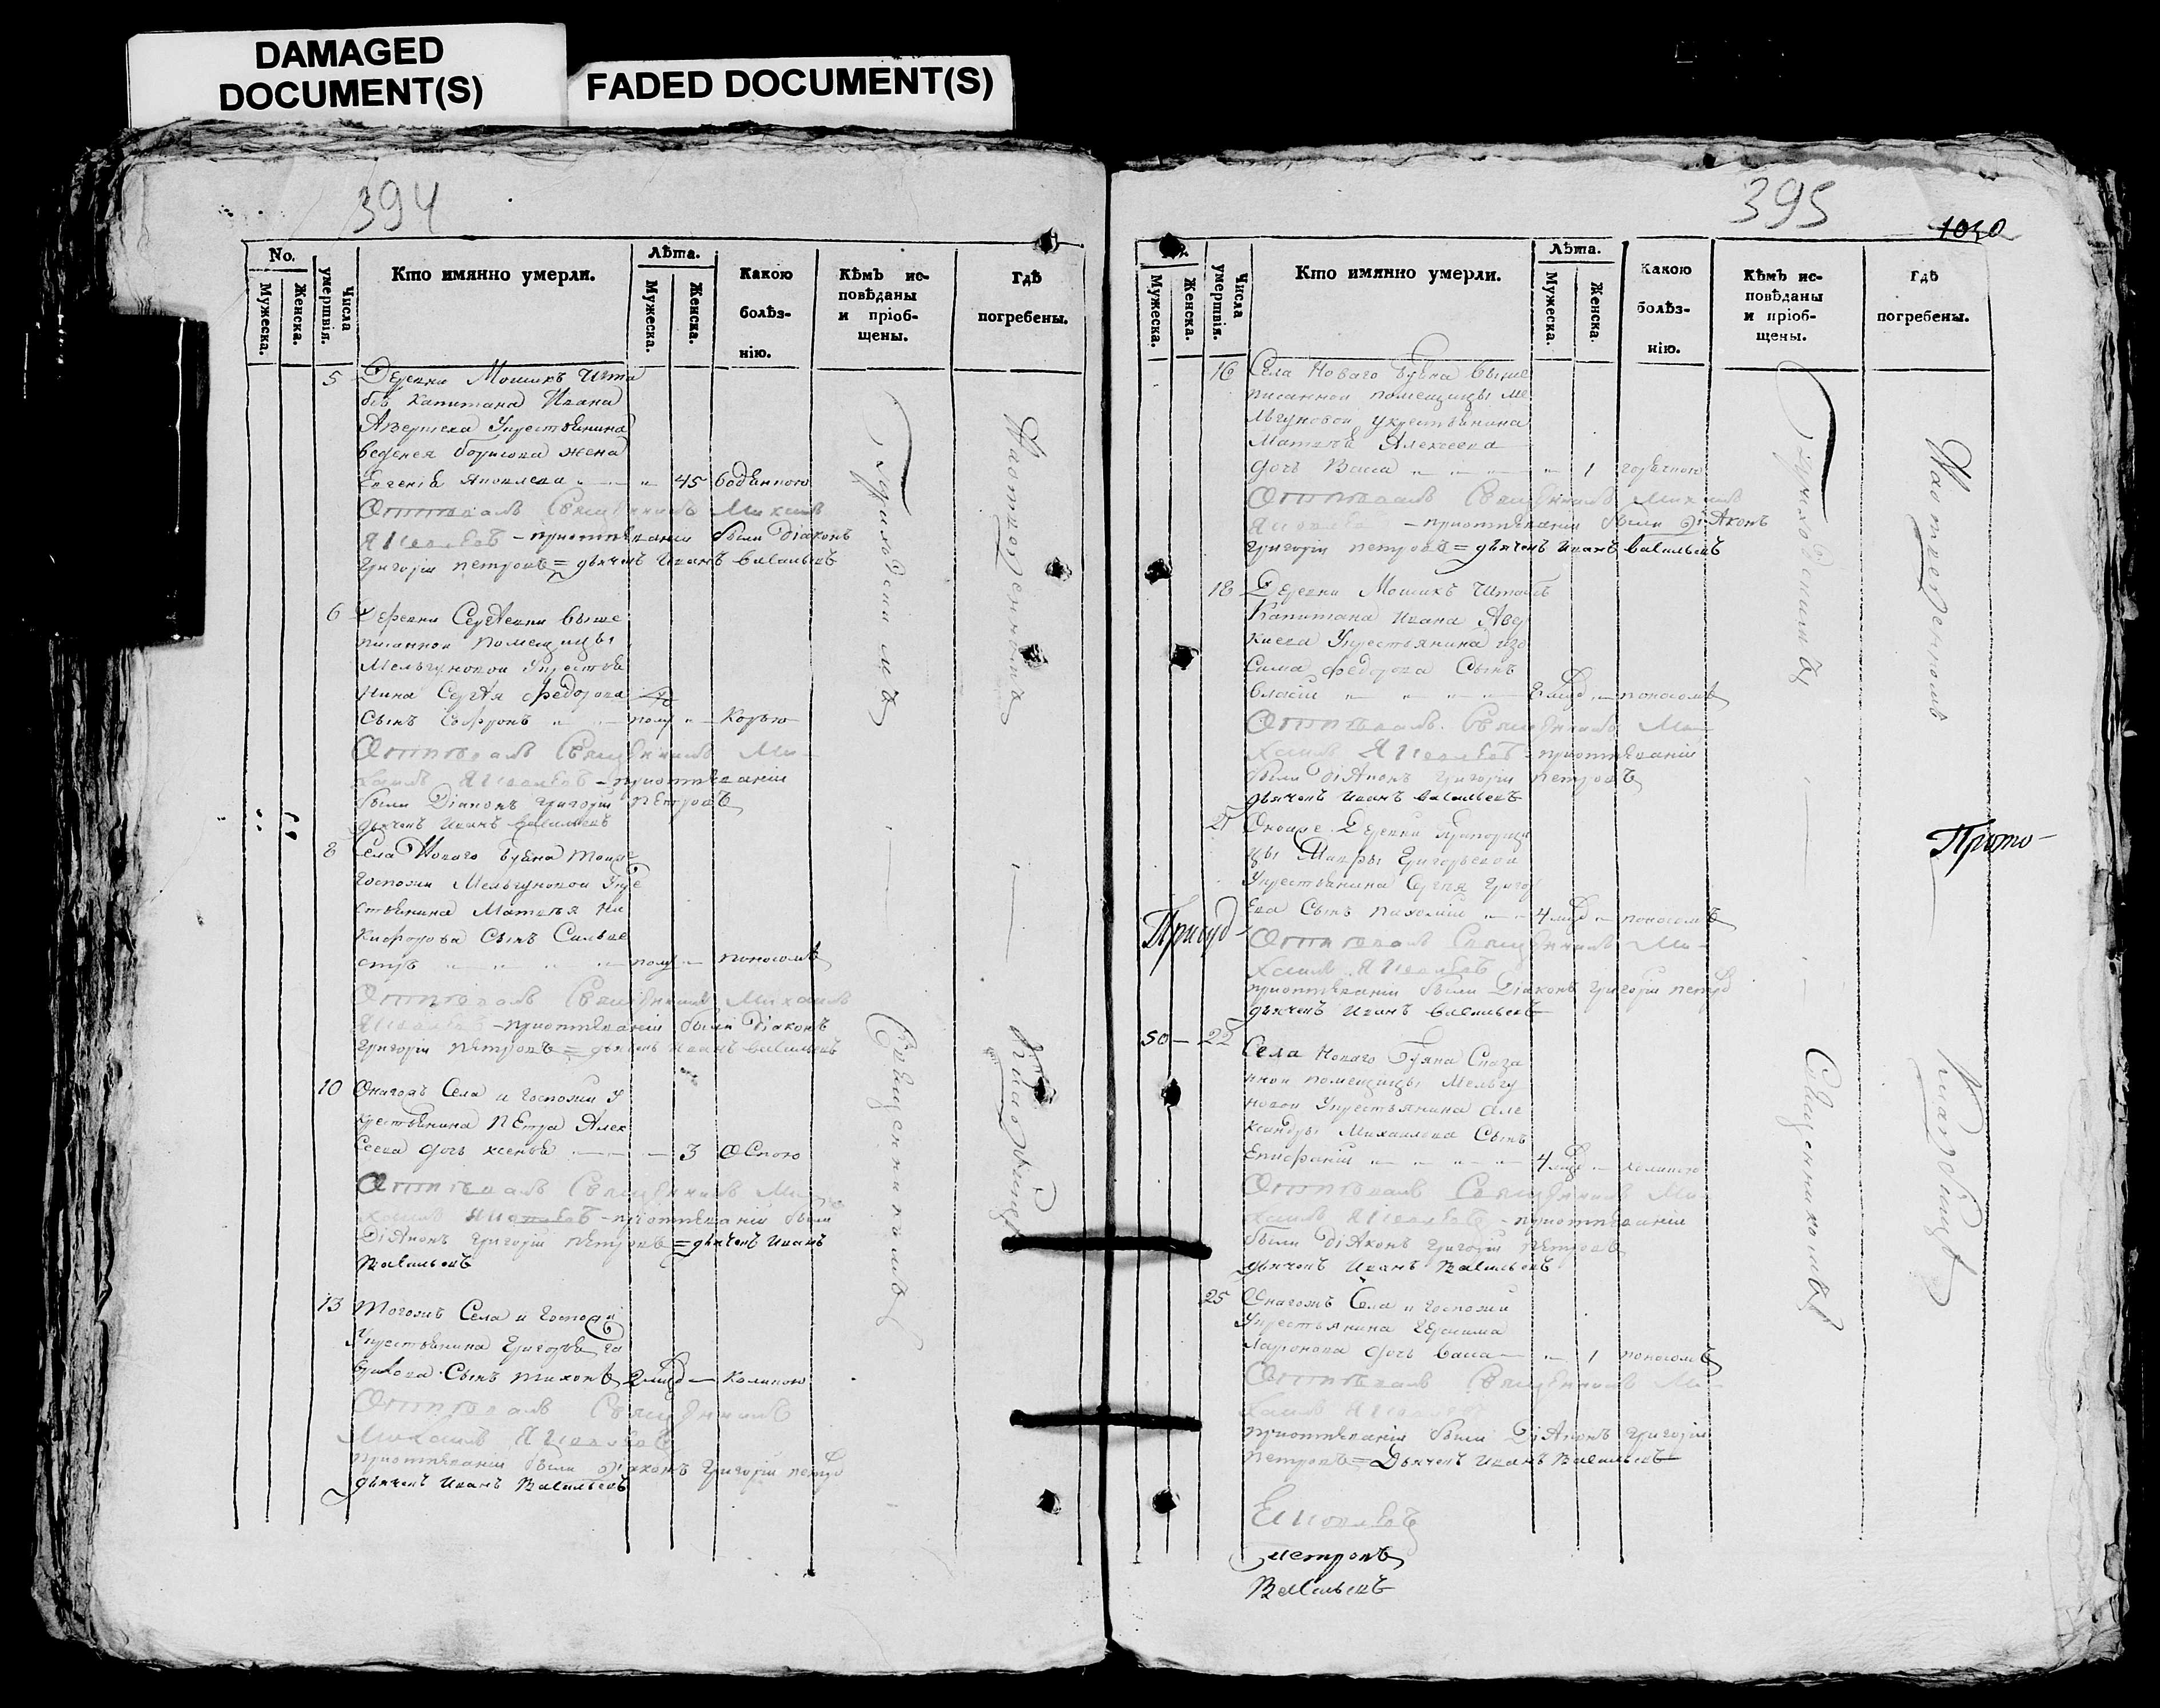 DAMAGED
DOCUMENT(S)
FADED DOCUMENT(S)
394
No.
Мужеска.
Женска.
Числа умертвія.
Кто имянно умерли.
Лѣта.
Мужеска.
Женска.
Какою
болѣз-
нію.
Кѣмъ ис-
повѣданы
и пріоб-
щены.
Гдѣ
погребены.
5 Деревни Мошкъ Шта
бсъ капитана Ивана
Аверкіева Укрестьянина
борисова жена
Евгенія Яковлева 45 водяною
Отпѣвалъ Священникъ Михаилъ
Яковлевъ - приотпѣваніи были Діаконъ
Григорій петровъ = дьячекъ Иванъ Васильевъ
6 Деревни Сергѣевки выше
писанной помещицы
Мельгуновой Укрестья
нина Сергѣя федорова
Сынъ Софронъ полу Корью
Отпѣвалъ Священникъ Ми-
хаилъ Яковлевъ - приотпѣваніи
были Діаконъ Григорій пЕтровъ
дьячекъ Иванъ Васильевъ
8 Села Новаго Буяна тоиже
Госпожи Мельгуновой Укре
стьянина Матвѣя Ни
кифорова Сынъ Сильве
стръ полу поносомъ
Отпѣвалъ Священникъ Михаилъ
Яковлевъ - приотпѣваніи были Діаконъ
Григорій пЕтровъ = дьячекъ Иванъ Васильевъ
10 Онагожъ Села и Госпожи У
крестьянина пЕтра Алек
Сеева дочь ксенья 3 ОСпою
Отпѣвалъ Священникъ Ми-
хаилъ Яковлевъ - приотпѣваніи были
Діаконъ Григорій пЕтровъ = дьячекъ Иванъ
Васильевъ
13 Тогожъ Села и Госпожи
Укрестьянина Григорья га
врилова Сынъ тихонъ 2 мид Коликою
Отпѣвалъ Священникъ
Михаилъ Яковлевъ
приотпѣваніи были діаконъ Григорій петро
дьячекъ Иванъ Васильевъ
Приходскимъ
Священникомъ
На отведенномъ
кладбищѣ
395
1040
Мужеска.
Женска.
Числа умертвія.
Кто имянно умерли.
Лѣта.
Мужеска.
Женска.
Какою
болѣз-
нію.
Кѣмъ ис-
повѣданы
и пріоб-
щены.
Гдѣ
погребены.
16 Села Новаго Буяна выше
писанной помещицы Ме
льгуновой укрестьянина
Матвѣя Алексеева
дочь Васса 1 горячкою
Отпѣвалъ Священникъ Михаилъ
Яковлевъ - приотпѣваніи были діАконъ
Григорій петровъ = дьячекъ Иванъ Васильевъ
18 Деревни Мошкъ Штабсъ
Капитана Ивана Авер
киева Укрестьянина изо
сима федорова Сынъ
власій поносомъ
Отпѣвалъ Священникъ Ми-
хаилъ Яковлевъ - приотпѣваніи
были діАконъ Григорій петровъ
дьячекъ Иванъ Васильевъ
21 Оноиже Деревни прапорщи
цы Мавры Григорьевой
Укрестьянина Сергѣя Григор
Ева Сынъ пахомій 4 мид поносомъ
Отпѣвалъ Священникъ Ми-
хаилъ Яковлевъ
приотпѣваніи были Діаконъ Григорій петро
дьячекъ Иванъ Васильевъ
50 22 Села Новаго Буяна Сказа
нной помещицы Мельгу
новой Укрестьянина Але
ксандры Михаилова Сынъ
Епифаній 4 мид коликою
Отпѣвалъ Священникъ Ми-
хаилъ Яковлевъ - приотпѣваніи
были діАконъ Григорій петровъ
дьячекъ Иванъ Васильевъ
25 Онагожъ Села и Госпожи
Укрестьянина Герасима
Ларионова дочь васса 1 поносомъ
Отпѣвалъ Священникъ Ми-
хаилъ Яковлевъ
приотпѣваніи были ДіАконъ Григорій
петровъ = Дьячекъ Иванъ Васильевъ
Яковлевъ
петровъ
Васильевъ
Приходскимъ
Священникомъ
На отведенномъ
кладбищѣ
Прото-